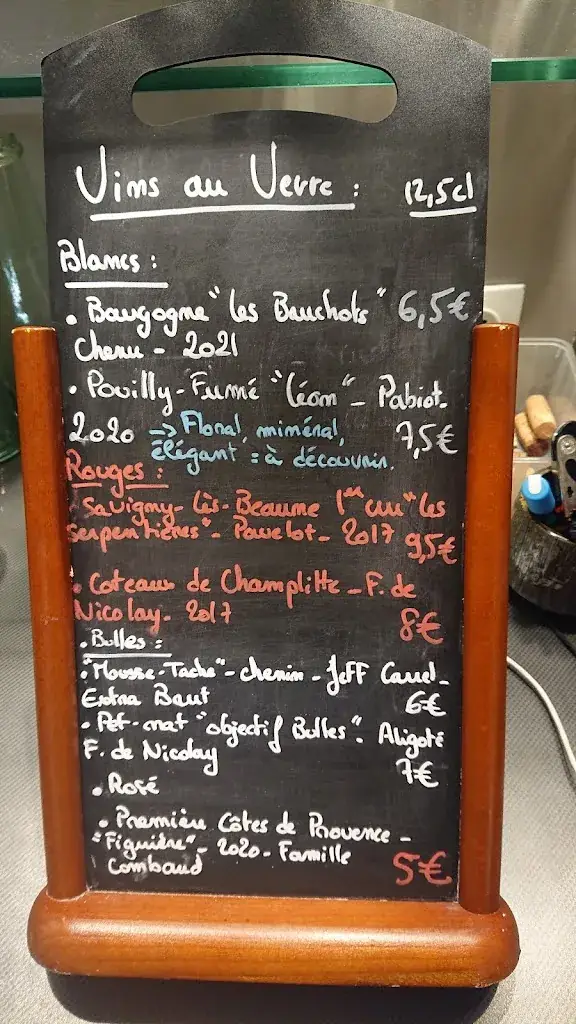 Vins au Verre : 12,5cl
Blancs :
. Bourgogne "Les Beuchots" 6,5€
Chenu - 2021
. Pouilly-Fumé "Léon" - Pabiot -
2020 → Floral, minéral, 7,5€
élégant = à découvrir.
Rouges :
. Savigny-Lès-Beaune 1er cru "les
serpentières" - Pavelot - 2017 9,5€
. Coteaux de Champlitte - F. de
Nicolay - 2017 8€
. Bulles :
. "Mousse-Tache" - chenin - Jeff Carrel -
Extra Brut 6€
. Pet-nat "objectif Bulles". Aligoté
F. de Nicolay 7€
. Rosé
. Première Côtes de Provence -
"Figuière" - 2020 - Famille
Combard 5€